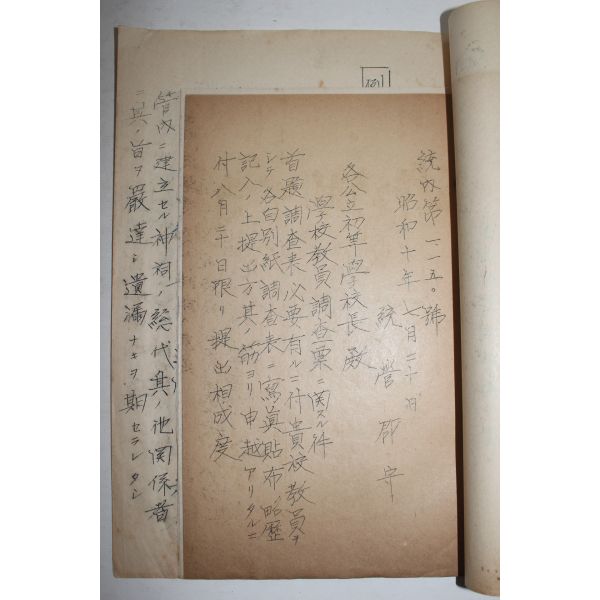 例
統内第一一五〇號
昭和十年七月二十日
統營郡守
各公立初等學校長殿
學校教員調査票ニ関スル件
首題調査表必要有ルニ付貴校教員ヲ
シテ各自別紙調査表ニ寫眞貼布ノ略歷
記入ノ上提出方其ノ筋ヨリ申越アリタルニ
付八月二十日限リ提出相成度
管内ニ建立セル神祠ノ總代其ノ他関係者
ニ其ノ旨ヲ嚴達シ遺漏ナキヲ期セラレタシ